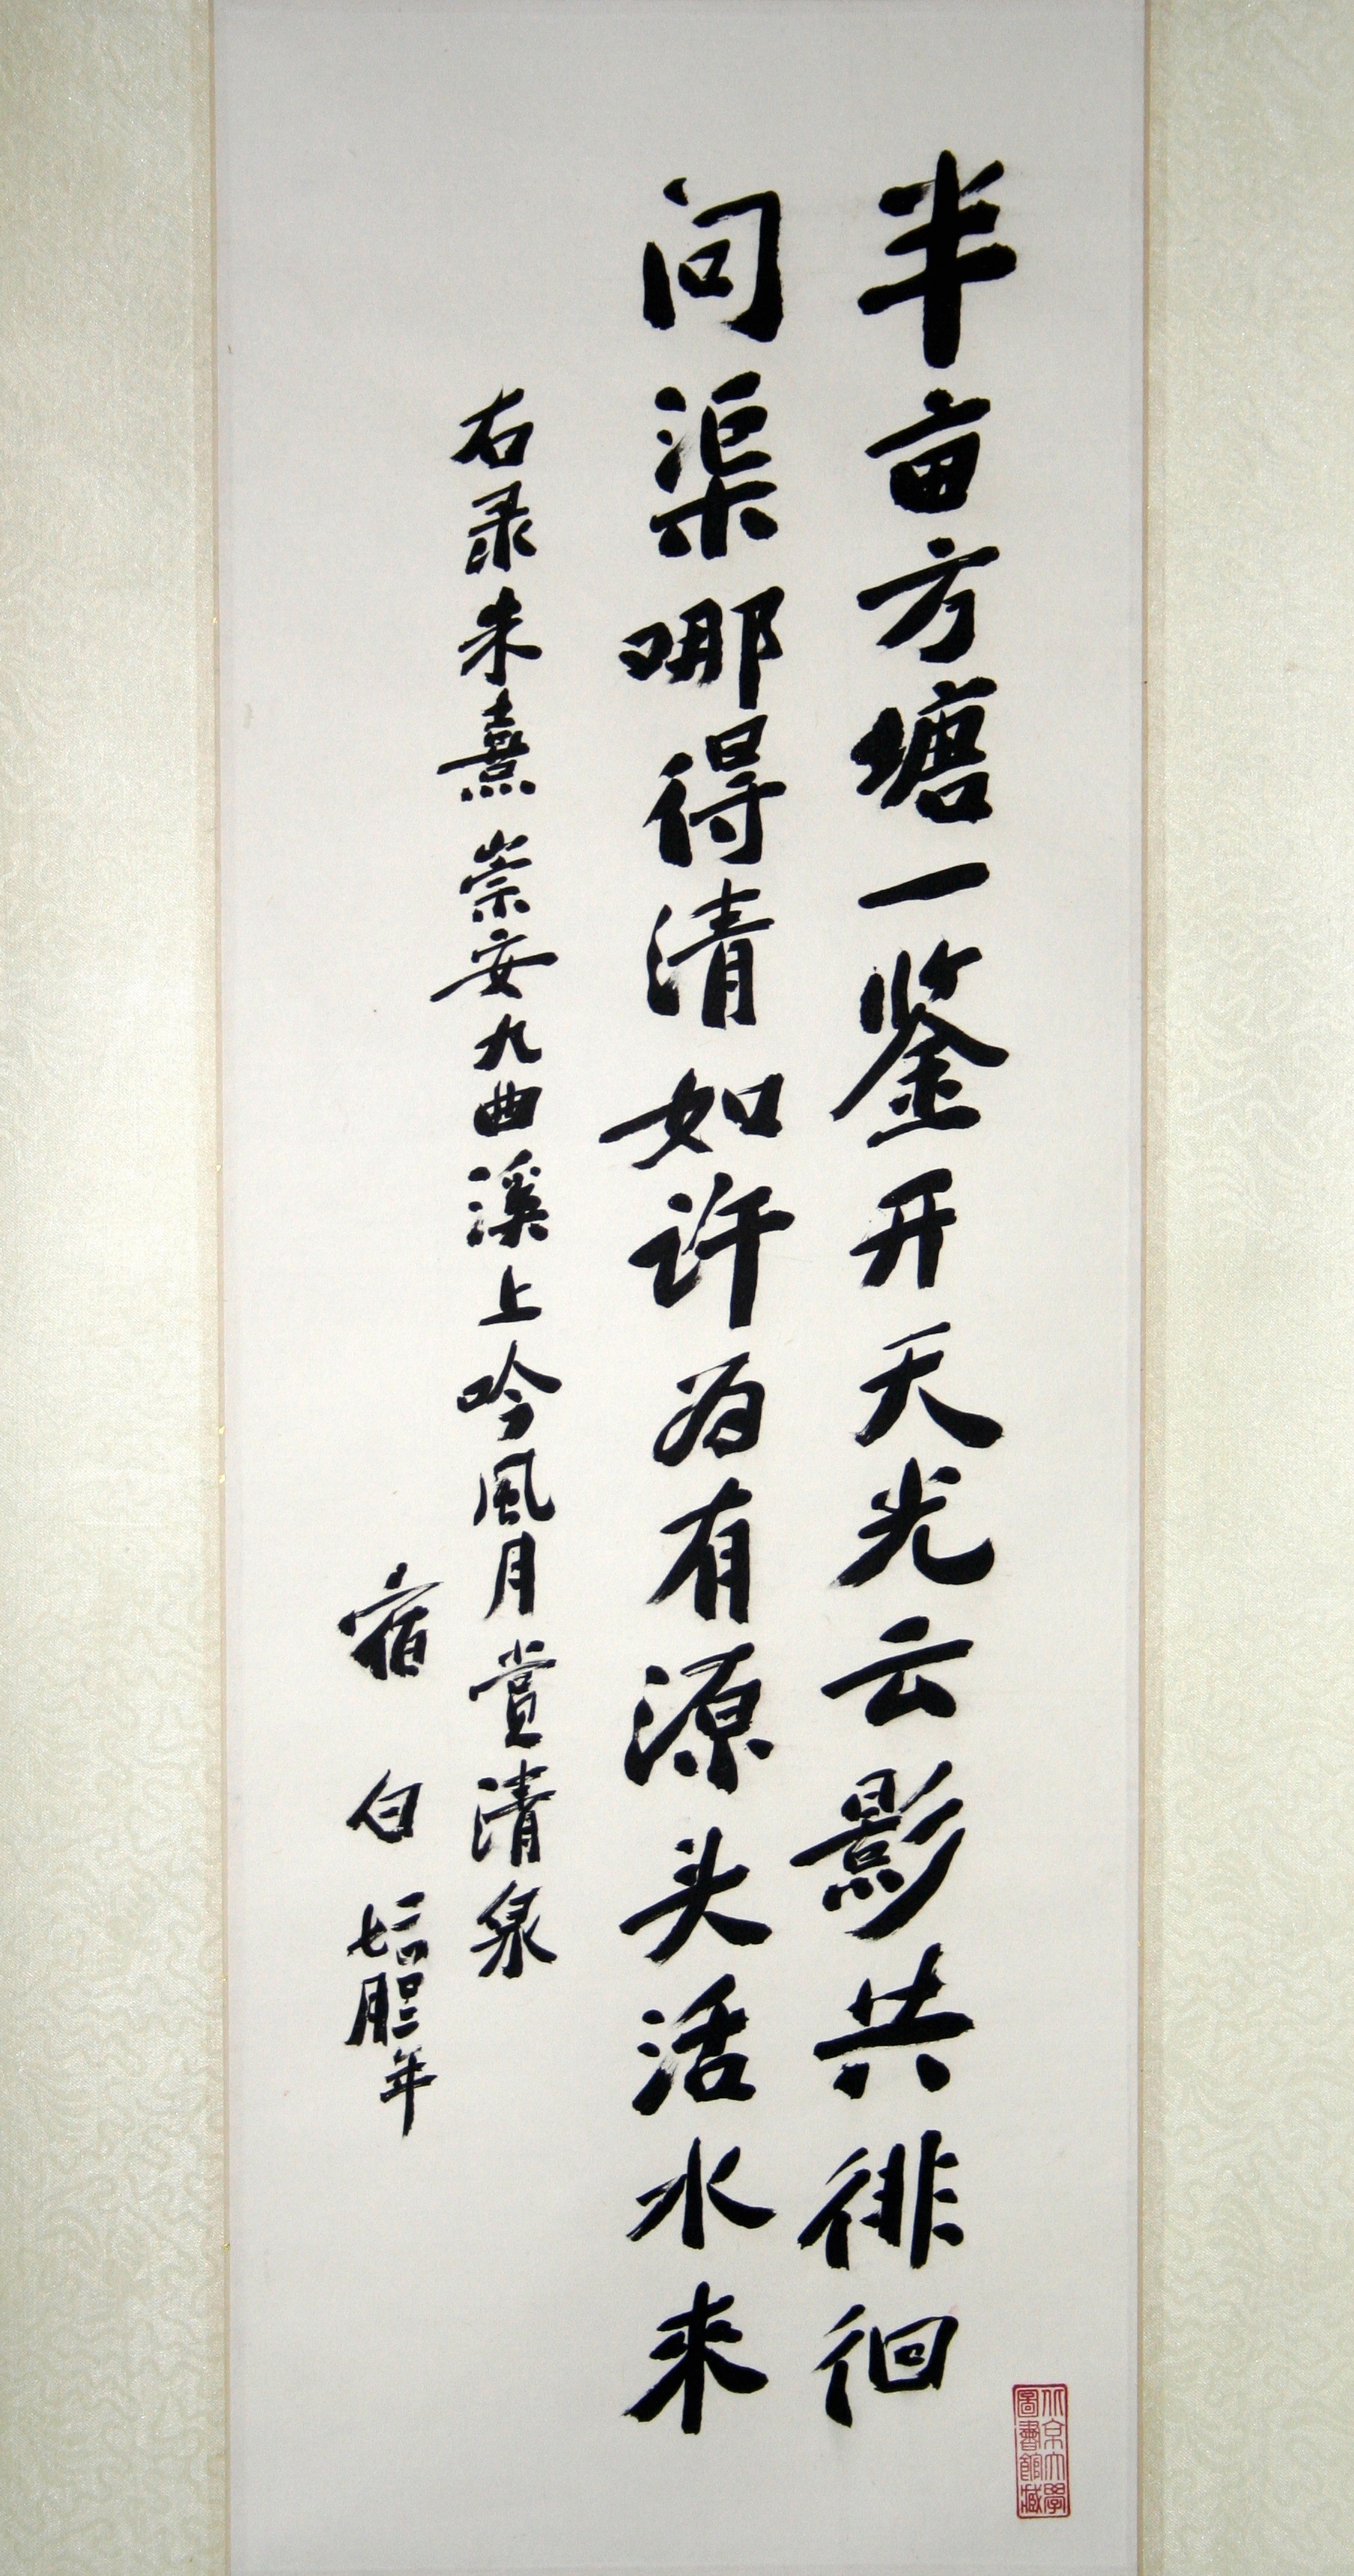 半亩方塘一鉴开天光云影共徘徊
问渠哪得清如许为有源头活水来
右录朱熹崇安九曲溪上吟风月赏清泉
宿白 年
北京大學
圖書館藏